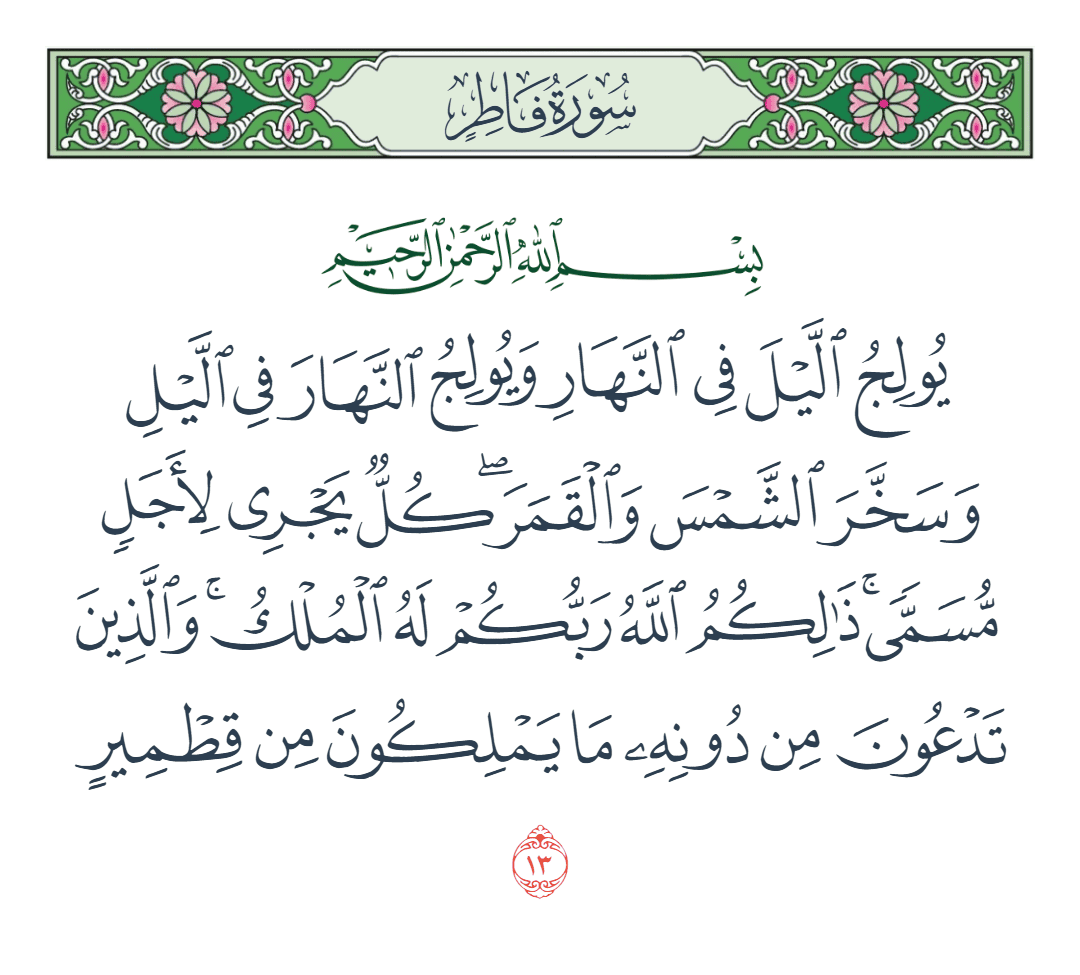 سُورَةُ فَاطِرٍ
بِسْمِ ٱللَّهِ ٱلرَّحْمَٰنِ ٱلرَّحِيمِ
يُولِجُ ٱلَّيْلَ فِى ٱلنَّهَارِ وَيُولِجُ ٱلنَّهَارَ فِى ٱلَّيْلِ
وَسَخَّرَ ٱلشَّمْسَ وَٱلْقَمَرَ ۖ كُلٌّ يَجْرِى لِأَجَلٍ
مُّسَمًّى ۚ ذَٰلِكُمُ ٱللَّهُ رَبُّكُمْ لَهُ ٱلْمُلْكُ ۚ وَٱلَّذِينَ
تَدْعُونَ مِن دُونِهِۦ مَا يَمْلِكُونَ مِن قِطْمِيرٍ
١٣